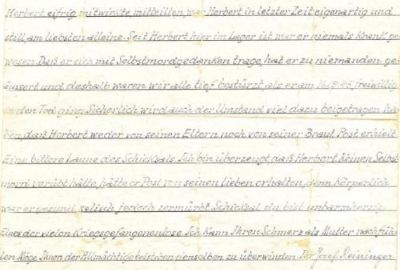 Herbert eifrig mitwirkte, mitteilten, war Herbert in letzter Zeit eigenartig und
still, am liebsten alleine. Seit Herbert hier im Lager ist war er niemals krank ge-
wesen. Daß er sich mit Selbstmordgedanken trage, hat er zu niemanden ge-
äusert und deshalb waren wir alle tief bestürzt als er am freiwillig
in den Tod ging. Sicherlich wird auch der Umstand viel dazu beigetragen ha-
ben, daß Herbert weder von seinen Eltern noch von seiner Braut Post erhielt.
Eine bittere Laune des Schicksals. Ich bin überzeugt daß Herbert keinen Selbst-
mord verübt hätte, hätte er Post von seinen lieben erhalten, denn körperlich
war er gesund, seelisch jedoch zermürbt. Schicksal ein bist unbarmherzig.
Eines der vielen Kriegsgefangenenlose. Ich kann Ihren Schmerz als Mutter nachfüh-
len. Möge Ihnen der Allmächtige beistehen denselben zu überwinden. Ihr Josef Reininger